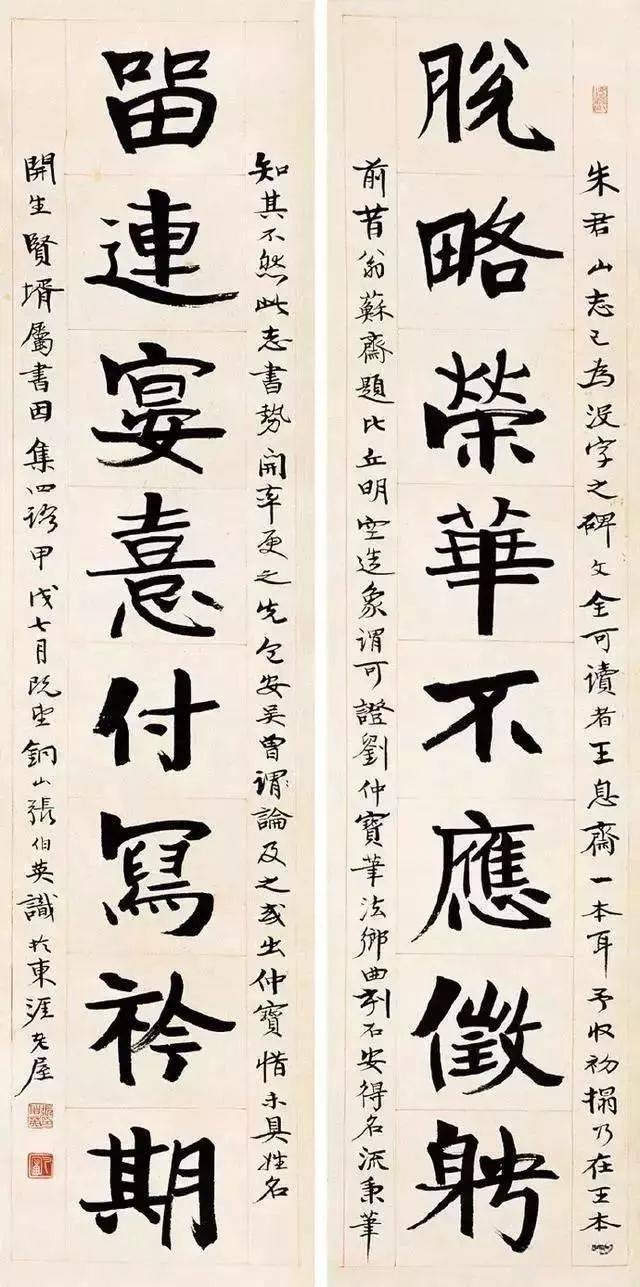 朱君山志已為沒字之碑文全可讀者王息齋一本耳予收初搨乃在王本
脫略榮華不應徵聘
前昔翁蘇齋題比丘明空造象謂可證劉仲寶筆法鄉曲刻石安得名流秉筆
知其不然此志書勢開率更之先包安吳曾謂論及之或出仲寶惜未具姓名
留連宴憙付寫衿期
開生賢壻屬書因集四語甲戌七月既望銅山張伯英識於東涯老屋